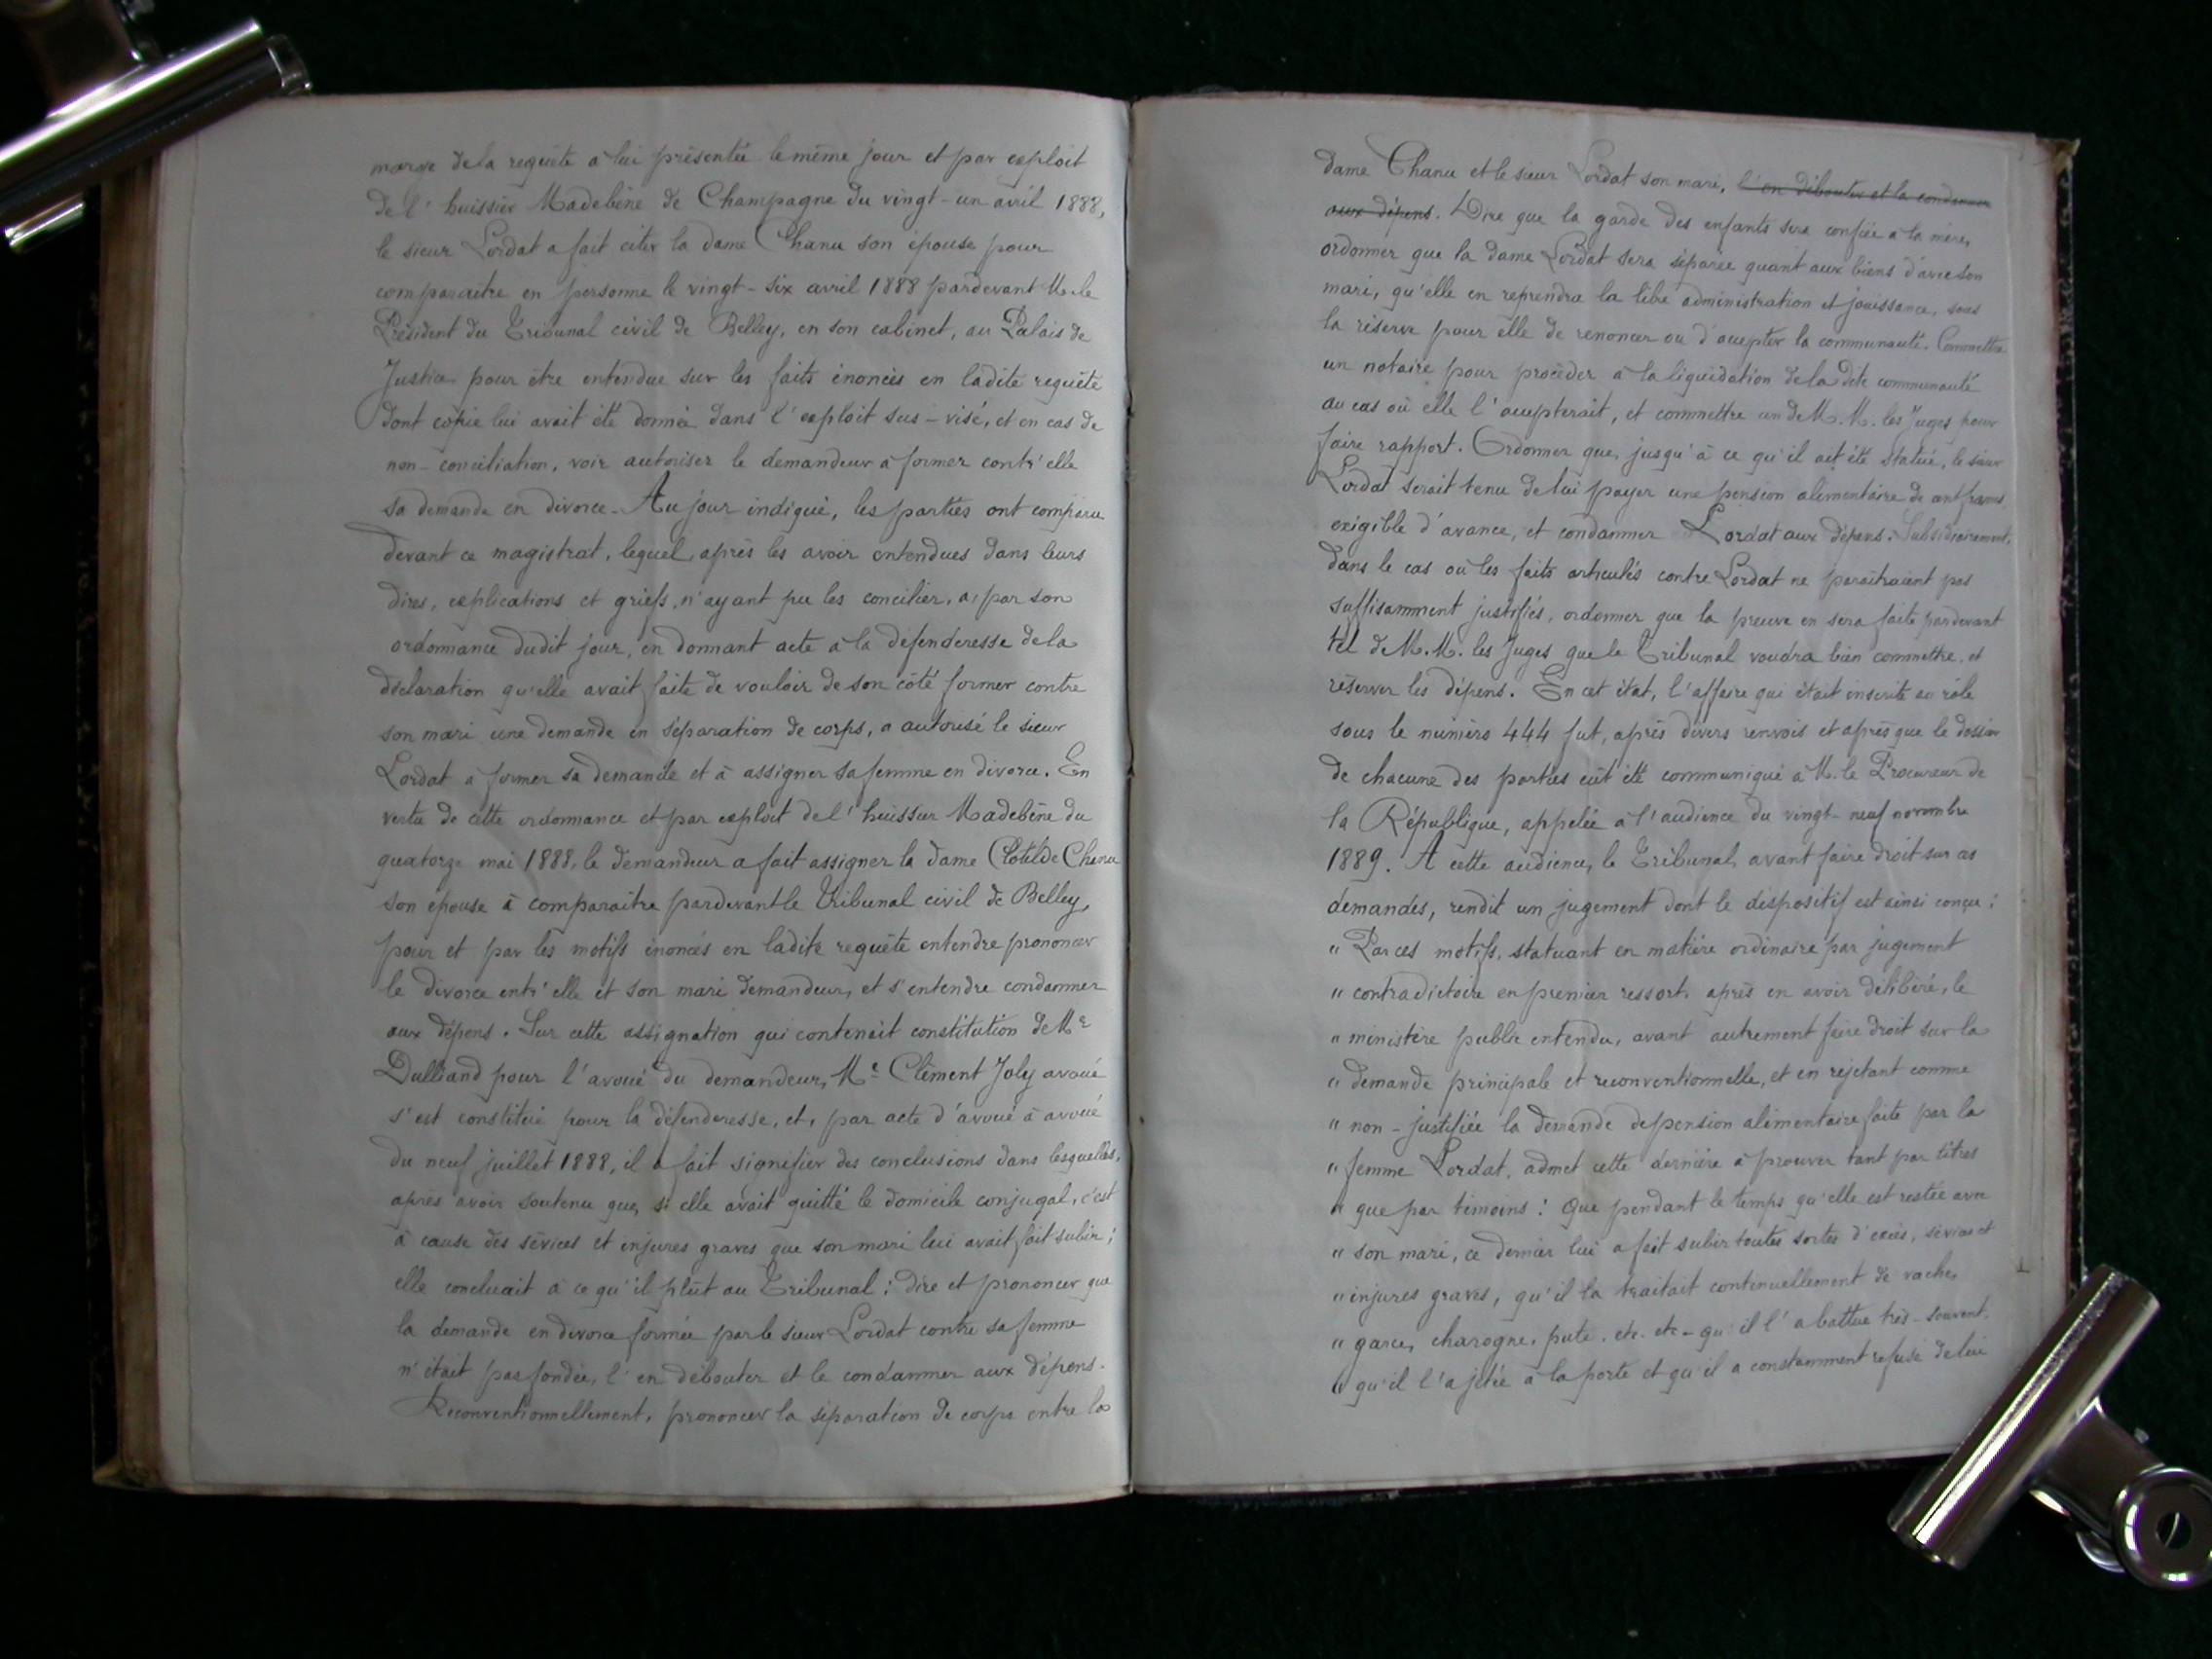 marge de la requête a lui présentée le même jour et par exploit
de l'huissier Madebène de Champagne du vingt-un avril 1888,
le sieur Lordat a fait citer la dame Chanu son épouse pour
comparaitre en personne le vingt-six avril 1888 pardevant M. le
Président du Tribunal civil de Belley, en son cabinet, au Palais de
Justice pour être entendue sur les faits énoncés en ladite requête
dont copie lui avait été donnée dans l'exploit sus-visé, et en cas de
non-conciliation, voir autoriser le demandeur à former contr'elle
sa demande en divorce. Au jour indiqué, les parties ont comparu
devant ce magistrat, lequel, après les avoir entendues dans leurs
dires, explications et griefs, n'ayant pu les concilier, a, par son
ordonnance dudit jour, en donnant acte a la défenderesse de la
déclaration qu'elle avait faite de vouloir de son côté former contre
son mari une demande en séparation de corps, a autorisé le sieur
Lordat à former sa demande et à assigner sa femme en divorce. En
vertu de cette ordonnance et par exploit de l'huissier Madebène du
quatorze mai 1888, le demandeur a fait assigner la dame Clotilde Chanu
son épouse à comparaitre pardevant le Tribunal civil de Belley,
pour et par les motifs énoncés en ladite requête entendre prononcer
le divorce entr'elle et son mari demandeur, et s'entendre condamner
aux dépens. Sur cette assignation qui contenait constitution de Me
Dulliand pour l'avoué du demandeur, Me Clément Joly avoué
s'est constitué pour la défenderesse, et, par acte d'avoué à avoué
du neuf juillet 1888, il a fait signifier des conclusions dans lesquelles,
après avoir soutenu que, si elle avait quitté le domicile conjugal, c'est
à cause des sévices et injures graves que son mari lui avait fait subir;
elle concluait à ce qu'il plût au Tribunal: dire et prononcer que
la demande en divorce formée par le sieur Lordat contre sa femme
n'était pas fondée, l'en débouter et le condamner aux dépens.
Reconventionnellement, prononcer la séparation de corps entre la
dame Chanu et le sieur Lordat son mari, l'en débouter et la condamner
aux dépens. Dire que la garde des enfants sera confiée a la mère,
ordonner que la dame Lordat sera séparée quant aux biens d'avec son
mari, qu'elle en reprendra la libre administration et jouissance, sous
la réserve pour elle de renoncer ou d'accepter la communauté. Commettre
un notaire pour procéder à la liquidation de la dite communauté
au cas où elle l'accepterait, et commettre un de M.M. les Juges pour
faire rapport. Ordonner que, jusqu'à ce qu'il ait été statué, le sieur
Lordat serait tenu de lui payer une pension alimentaire de cent francs
exigible d'avance, et condamner Lordat aux dépens. Subsidiairement,
dans le cas où les faits articulés contre Lordat ne paraîtraient pas
suffisamment justifiés, ordonner que la preuve en sera faite pardevant
tel de M.M. les Juges que le Tribunal voudra bien commettre, et
réserver les dépens. En cet état, l'affaire qui était inscrite au rôle
sous le numéro 444 fut, après divers renvois et après que le dossier
de chacune des parties eût été communiqué à M. le Procureur de
la République, appelée a l'audience du vingt-neuf novembre
1889. A cette audience, le Tribunal, avant faire droit sur ces
demandes, rendit un jugement dont le dispositif est ainsi conçu:
" Par ces motifs, statuant en matière ordinaire par jugement
" contradictoire en premier ressort, après en avoir délibéré, le
" ministère public entendu, avant autrement faire droit sur la
" demande principale et reconventionnelle, et en rejetant comme
" non-justifiée la demande de pension alimentaire faite par la
" femme Lordat, admet cette dernière à prouver tant par titres
" que par témoins: Que pendant le temps qu'elle est restée avec
" son mari, ce dernier lui a fait subir toutes sortes d'excès, sévices et
" injures graves, qu'il la traitait continuellement de vache,
" garce, charogne, pute, etc. etc - qu'il l'a battue très-souvent.
" qu'il l'a jetée a la porte et qu'il a constamment refusé de lui